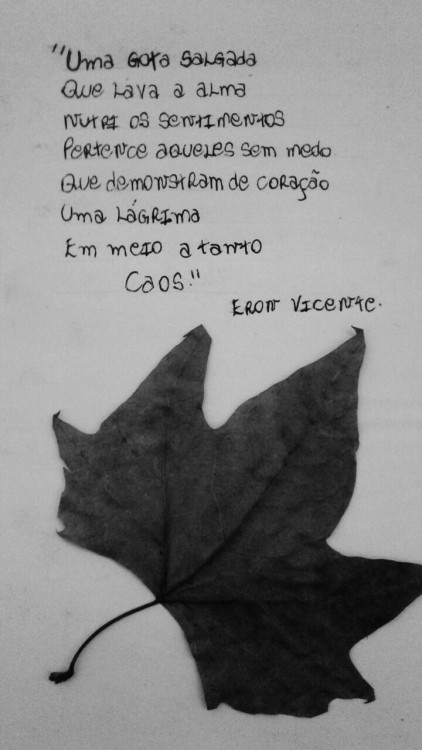 "Uma gota salgada
Que lava a alma
Nutri os sentimentos
Pertence aqueles sem medo
Que demonstram de coração
Uma lágrima
Em meio a tanto
Caos."
Eron Vicente.